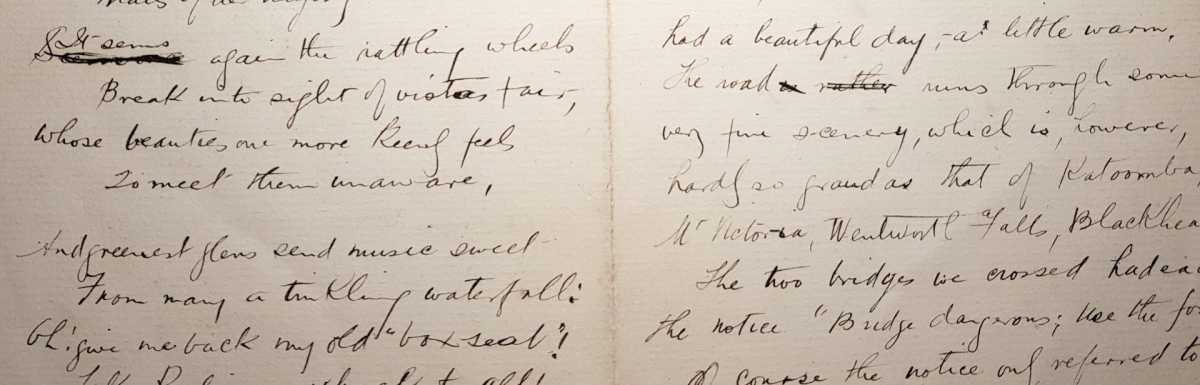 It seems again the rattling wheels
Break into sight of vistas fair,
Whose beauties one more keenly feels
To meet them unaware,
And greenest glens send music sweet
From many a tinkling waterfall:
Oh! give me back my old "box seat"!
had a beautiful day, - a little warm.
The road rather runs through some
very fine scenery, which is, however,
hardly so grand as that of Katoomba,
Mt Victoria, Wentworth Falls, Blackhea
The two bridges we crossed had eac
the notice "Bridge dangerous; Use the fo
Of course the notice only referred to